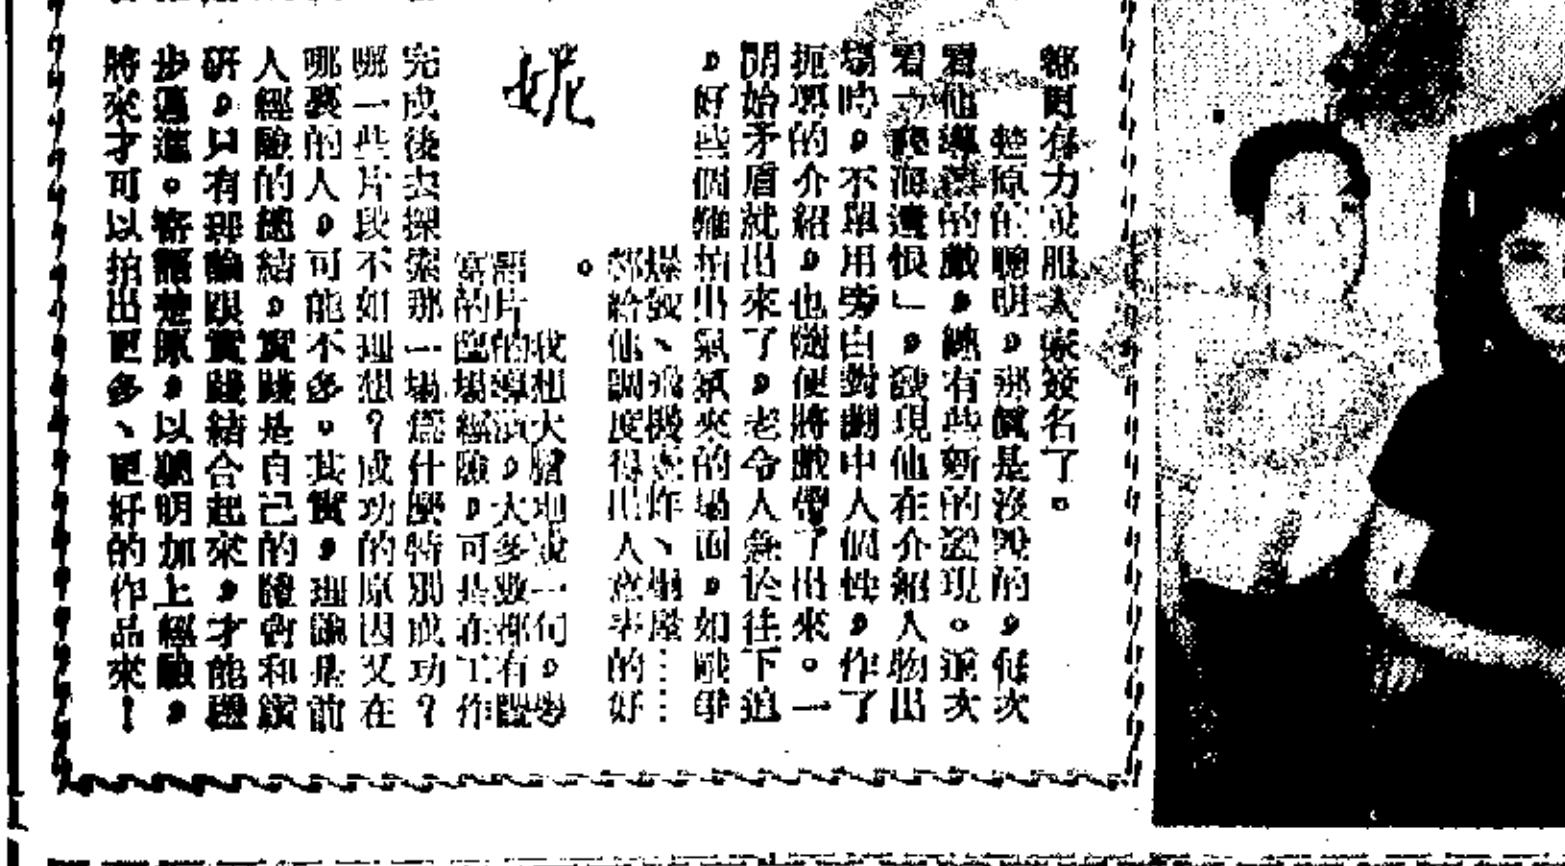 都更有力說服大家簽名了。
楚原的聰明，那眞是沒說的，每次
看他導演的戲，總有些新的發現。這次
看「滄海遺恨」，發現他在介紹人物出
場時，不單用旁白對劇中人個性，作了
扼要的介紹，也隨便將戲帶了出來。一
開始矛盾就出來了，老令人急於往下追
，好些個難拍出氣氛來的場面，如戰爭
爆發、飛機轟炸、塌屋……
都給他調度得出人意表的好
。
妮
我想大膽地說一句，粵
語片的導演，大多數都有豐
富的臨場經驗，可是在工作
完成後去探索那一場爲什麼特別成功？
哪一些片段不如理想？成功的原因又在
哪裏的人，可能不多。其實，理論是前
人經驗的總結，實踐是自己的體會和鑽
研，只有理論跟實踐結合起來，才能穩
步邁進。寄語楚原，以聰明加上經驗，
將來才可以拍出更多、更好的作品來！